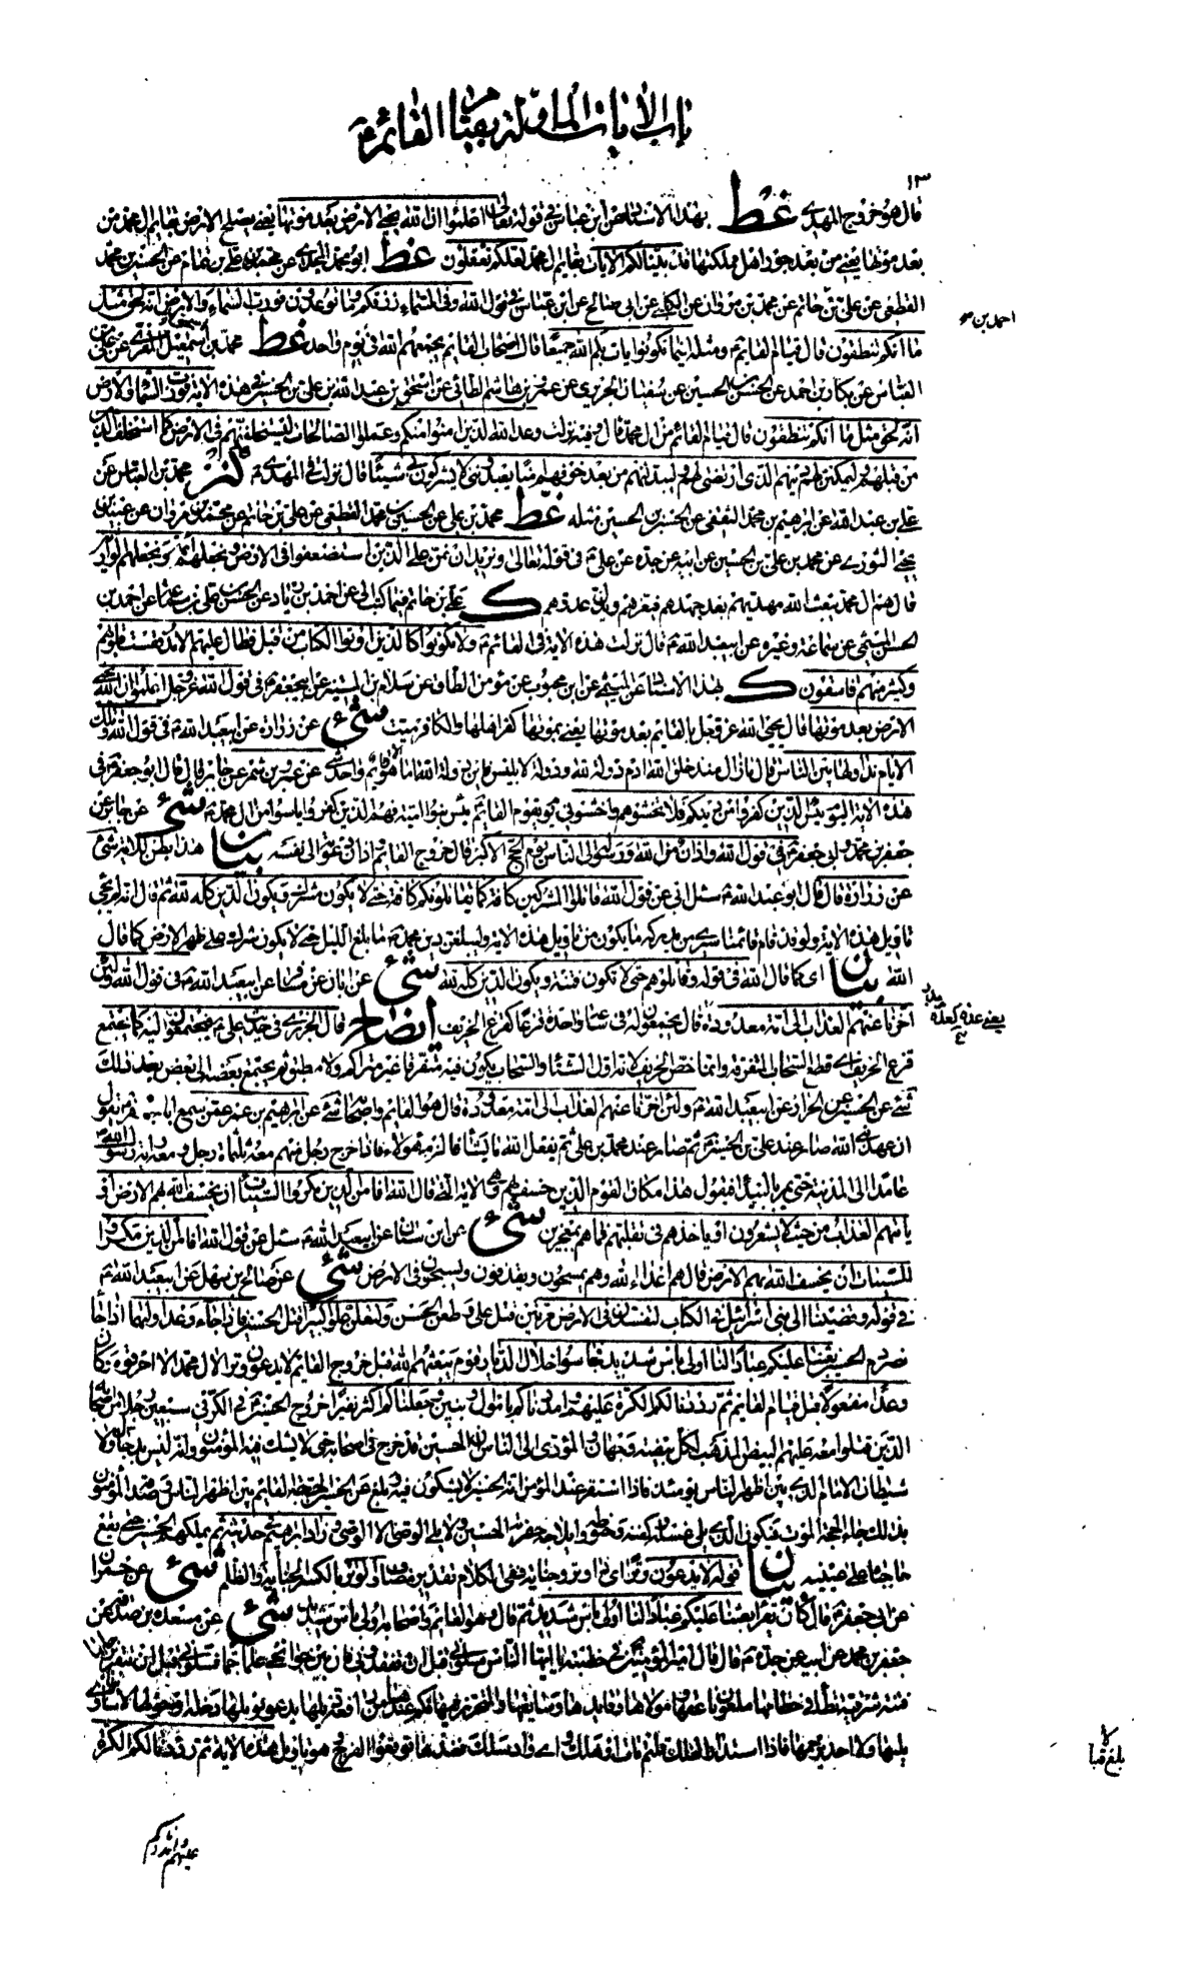 باب الآيات المأولة بقيام القائم ع
١٣
قال هو خروج المهدي غط بهذا الإسناد عن ابن عباس في قوله تعالى اعلموا أن الله يحيي الأرض بعد موتها يعني يصلح الأرض بقائم آل محمد من
بعد موتها يعني من بعد جور أهل مملكتها قد بينا لكم الآيات بقائم آل محمد لعلكم تعقلون غط أبو محمد المجدي عن محمد بن علي بن تمام عن الحسين بن محمد
القطعي عن علي بن حاتم عن محمد بن مروان عن الكلبي عن أبي صالح عن ابن عباس في قول الله وفي السماء رزقكم وما توعدون فورب السماء والأرض إنه لحق مثل
احمد بن
ما أنكم تنطقون قال قيام القائم ع ومثله أينما تكونوا يأت بكم الله جميعا قال أصحاب القائم يجمعهم الله في يوم واحد غط محمد بن إسمعيل المقري عن علي بن
العباس عن بكار بن أحمد عن الحسن بن الحسين عن سفيان الجريري عن عمير بن هاشم الطائي عن إسحق بن عبد الله بن علي بن الحسين في هذه الآية فورب السماء والأرض
إنه لحق مثل ما أنكم تنطقون قال قيام القائم من آل محمد قال وفيه نزلت وعد الله الذين آمنوا منكم وعملوا الصالحات ليستخلفنهم في الأرض كما استخلف الذين
من قبلهم وليمكنن لهم دينهم الذي ارتضى لهم وليبدلنهم من بعد خوفهم أمنا يعبدونني لا يشركون بي شيئا قال نزلت في المهدي ع كنز محمد بن العباس عن
علي بن عبد الله عن إبراهيم بن محمد الثقفي عن الحسن بن الحسين مثله غط محمد بن علي عن الحسين بن محمد القطعي عن علي بن حاتم عن محمد بن مروان عن عبيد بن
يحيى الثوري عن محمد بن علي بن الحسين عن أبيه عن جده عن علي ع في قوله تعالى ونريد أن نمن على الذين استضعفوا في الأرض ونجعلهم أئمة ونجعلهم الوارثين
قال هم آل محمد يبعث الله مهديهم بعد جهدهم فيعزهم ويذل عدوهم ك علي بن حاتم فيما كتب إلي عن أحمد بن زياد عن الحسن بن علي بن سماعة عن أحمد بن
الحسن الميثمي عن سماعة وغيره عن أبي عبد الله ع قال نزلت هذه الآية في القائم ع ولا يكونوا كالذين أوتوا الكتاب من قبل فطال عليهم الأمد فقست قلوبهم
وكثير منهم فاسقون ك بهذا الإسناد عن الميثمي عن ابن محبوب عن مؤمن الطاق عن سلام بن المستنير عن أبي جعفر ع في قول الله عز وجل اعلموا أن الله يحيي
الأرض بعد موتها قال يحيي الله عز وجل بالقائم بعد موتها يعني بموتها كفر أهلها والكافر ميت شي عن زرارة عن أبي عبد الله ع في قول الله وتلك
الأيام نداولها بين الناس قال ما زال منذ خلق الله آدم دولة لله ودولة لإبليس فأين دولة الله أما هو إلا قائم واحد شي عن عمرو بن شمر عن جابر قال قال أبو جعفر ع في
هذه الآية اليوم يئس الذين كفروا من دينكم فلا تخشوهم واخشون يوم يقوم القائم ع يئس بنو أمية فهم الذين كفروا يئسوا من آل محمد ع شي عن جابر عن
جعفر بن محمد وأبي جعفر ع في قول الله وأذان من الله ورسوله إلى الناس يوم الحج الأكبر قال خروج القائم وأذان دعوته إلى نفسه بيان هذا بطن للآية شي
عن زرارة قال قال أبو عبد الله ع سئل أبي عن قول الله قاتلوا المشركين كافة كما يقاتلونكم كافة حتى لا يكون مشرك ويكون الدين كله لله ثم قال إنه لم يجئ
تأويل هذه الآية ولو قد قام قائمنا سيرى من يدركه ما يكون من تأويل هذه الآية وليبلغن دين محمد ع ما بلغ الليل حتى لا يكون شرك على ظهر الأرض كما قال
الله بيان أي كما قال الله في قوله وقاتلوهم حتى لا تكون فتنة ويكون الدين كله لله شي عن أبان عن مسافر عن أبي عبد الله ع في قول الله ولئن
أخرنا عنهم العذاب إلى أمة معدودة قال يجتمعون له في ساعة واحدة قزعا كقزع الخريف إيضاح قال الجزري في حديث علي ع فيجتمعون إليه كما يجتمع
يعني عدة كعدة بدر
قزع الخريف أي قطع السحاب المتفرقة وإنما خص الخريف لأنه أول الشتاء والسحاب يكون فيه متفرقا غير متراكم ولا مطبق ثم يجتمع بعضه إلى بعض بعد ذلك
شي عن الحسين عن الخزاز عن أبي عبد الله ع ولئن أخرنا عنهم العذاب إلى أمة معدودة قال هو القائم وأصحابه شي عن إبراهيم بن عمر عمن سمع أبا جعفر ع يقول
إن عهد نبي الله صار عند علي بن الحسين ع ثم صار عند محمد بن علي ثم يفعل الله ما يشاء فالزم هؤلاء فإذا خرج رجل منهم معه ثلثمائة رجل ومعه راية رسول الله ص
عامدا إلى المدينة حتى يمر بالبيداء فيقول هذا مكان القوم الذين خسف بهم وهي الآية التي قال الله أفأمن الذين مكروا السيئات أن يخسف الله بهم الأرض أو
يأتيهم العذاب من حيث لا يشعرون أو يأخذهم في تقلبهم فما هم بمعجزين شي عن ابن سنان عن أبي عبد الله ع سئل عن قول الله أفأمن الذين مكروا
السيئات أن يخسف الله بهم الأرض قال هم أعداء الله وهم يمسخون ويقذفون ويسبخون في الأرض شي عن صالح بن سهل عن أبي عبد الله ع
في قوله وقضينا إلى بني إسرائيل في الكتاب لتفسدن في الأرض مرتين قتل علي وطعن الحسن ولتعلن علوا كبيرا قتل الحسين فإذا جاء وعد أولهما إذا جاء
نصر دم الحسين بعثنا عليكم عبادا لنا أولي بأس شديد فجاسوا خلال الديار قوم يبعثهم الله قبل خروج القائم لا يدعون وترا لآل محمد إلا أحرقوه وكان
وعدا مفعولا قبل قيام القائم ثم رددنا لكم الكرة عليهم وأمددناكم بأموال وبنين وجعلناكم أكثر نفيرا خروج الحسين ع في الكرة في سبعين رجلا من أصحابه
الذين قتلوا معه عليهم البيض المذهب لكل بيضة وجهان والمؤدي إلى الناس أن الحسين قد خرج في أصحابه حتى لا يشك فيه المؤمنون وأنه ليس بدجال ولا
شيطان الإمام الذي بين أظهر الناس يومئذ فإذا استقر عند المؤمن أنه الحسين لا يشكون فيه وبلغ عن الحسين الحجة القائم بين أظهر الناس وصدقه المؤمنون
بذلك جاء الحجة الموت فيكون الذي يلي غسله وكفنه وحنوطه وإيلاجه حفرته الحسين ولا يلي الوصي إلا الوصي وزاد إبراهيم في حديثه ثم يملكهم الحسين حتى يقع
حاجباه على عينيه بيان قوله لا يدعون وترا أي ذا وتر وجناية ففي الكلام تقدير مضاف والوتر بالكسر الجناية والظلم شي عن حمران
عن أبي جعفر ع قال كان يقرأ بعثنا عليكم عبادا لنا أولي بأس شديد ثم قال وهو القائم وأصحابه أولي بأس شديد شي عن مسعدة بن صدقة عن
جعفر بن محمد عن أبيه عن جده ع قال قال أمير المؤمنين ع في خطبته يا أيها الناس سلوني قبل أن تفقدوني فإن بين جوانحي علما جما فسلوني قبل أن تبقر
فتنة شرقية تطأ في خطامها ملعون ناعقها ومولاها وقائدها وسائقها والمتحرز فيها فكم عندها من رافعة ذيلها يدعو بويلها دجلة أو حولها لا مأوى
يكنها ولا أحد يرحمها فإذا استدار الفلك قلتم مات أو هلك وأي واد سلك فعندها توقعوا الفرج وهو تأويل هذه الآية ثم رددنا لكم الكرة
بلغ قبالا
عليهم وأمددناكم